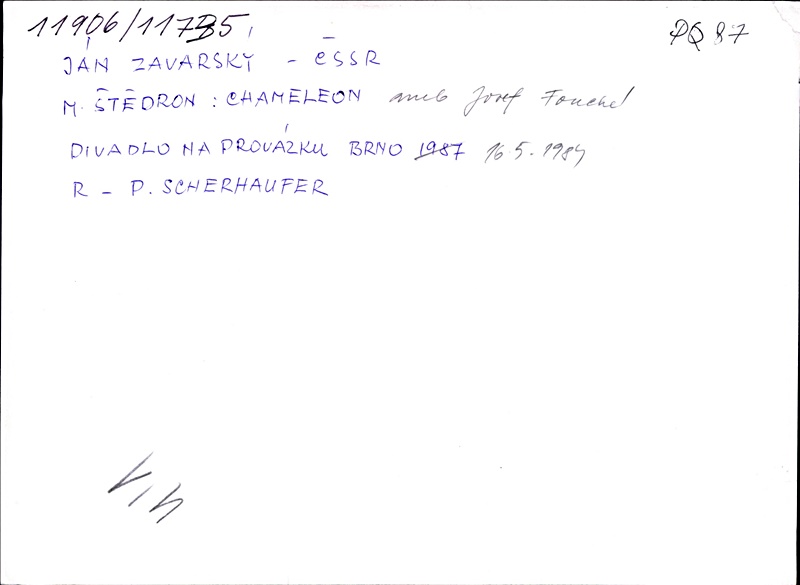 11906/11735
PQ 87
JÁN ZAVARSKÝ – ČSSR
M. ŠTĚDROŇ : CHAMELEON aneb Josef Fouché
DIVADLO NA PROVÁZKU BRNO 1987 16 5. 1984
R – P. SCHERHAUFER